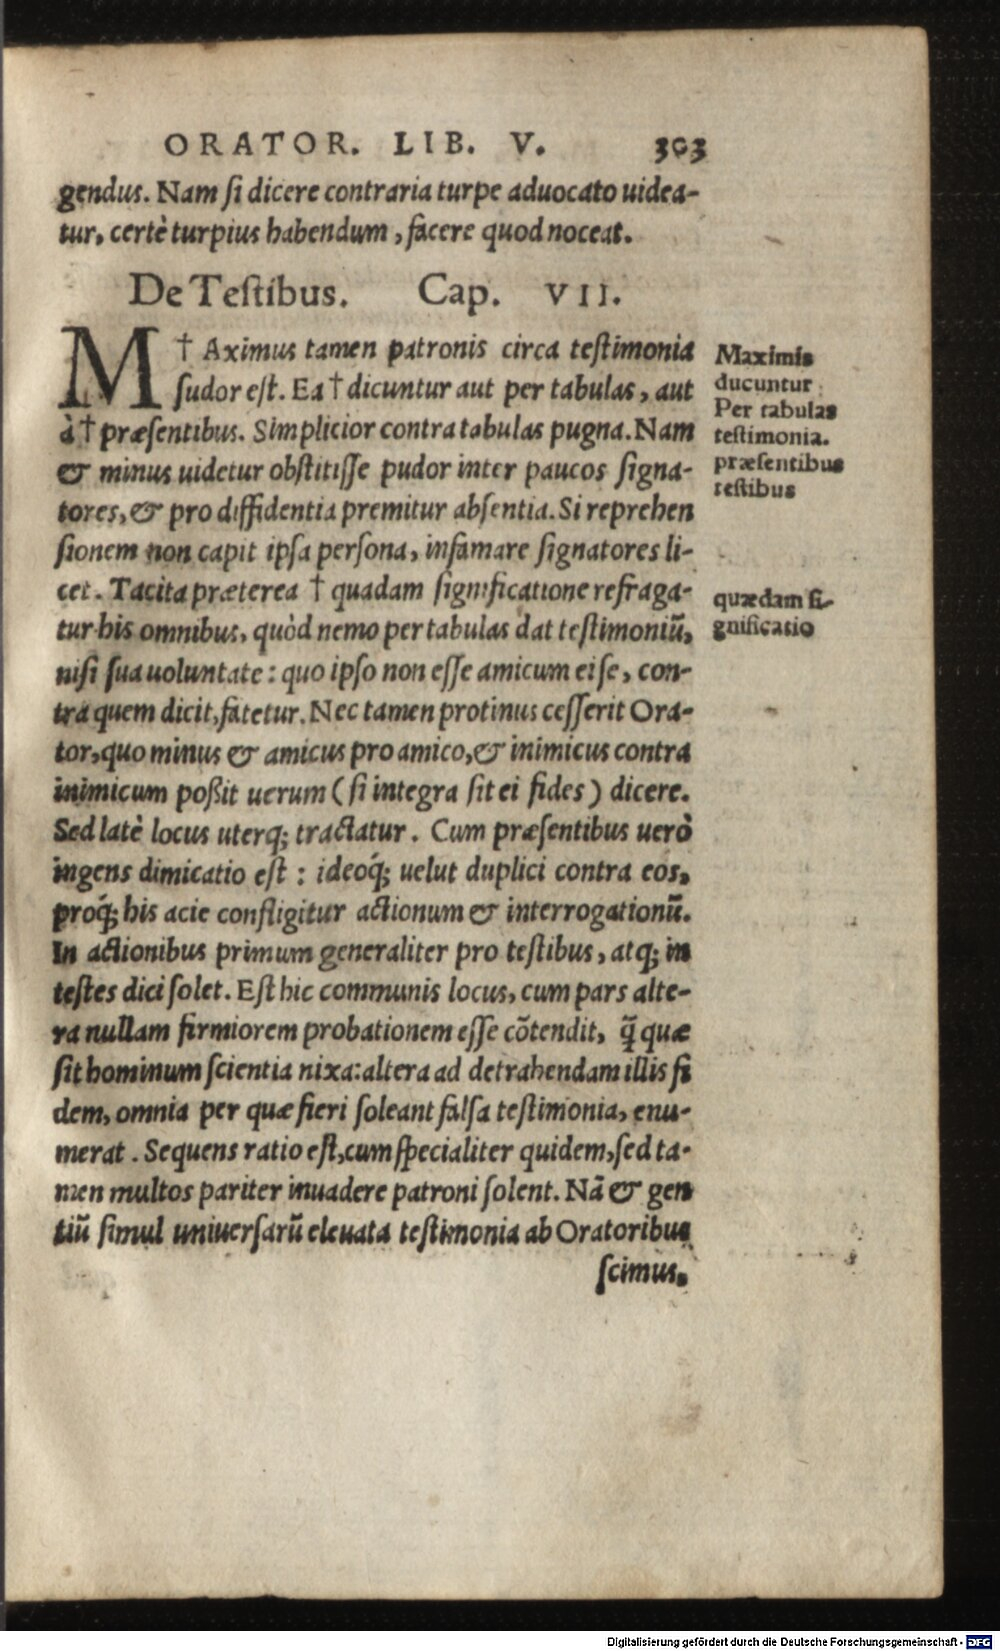 ORATOR. LIB. V. 303
gendus. Nam si dicere contraria turpe aduocato uidea-
tur, certè turpius habendum, facere quod noceat.
De Testibus. Cap. VII.
M† Aximus tamen patronis circa testimonia
sudor est. Ea † dicuntur aut per tabulas, aut
à † præsentibus. Simplicior contra tabulas pugna. Nam
& minus uidetur obstitisse pudor inter paucos signa-
tores, & pro diffidentia premitur absentia. Si reprehen
sionem non capit ipsa persona, infamare signatores li-
cet. Tacita præterea † quadam significatione refraga-
tur his omnibus, quòd nemo per tabulas dat testimoniũ,
nisi sua uoluntate: quo ipso non esse amicum ei se, con-
tra quem dicit, fatetur. Nec tamen protinus cesserit Ora-
tor, quo minus & amicus pro amico, & inimicus contra
inimicum poßit uerum (si integra sit ei fides) dicere.
Sed latè locus uterq; tractatur. Cum præsentibus uerò
ingens dimicatio est: ideoq́; uelut duplici contra eos,
proq́; his acie confligitur actionum & interrogationũ.
In actionibus primum generaliter pro testibus, atq; in
testes dici solet. Est hic communis locus, cum pars alte-
ra nullam firmiorem probationem esse cõtendit, q̃ quæ
sit hominum scientia nixa: altera ad detrahendam illis fi
dem, omnia per quæ fieri soleant falsa testimonia, enu-
merat. Sequens ratio est, cum specialiter quidem, sed ta-
men multos pariter inuadere patroni solent. Nã & gen
tiũ simul uniuersarũ eleuata testimonia ab Oratoribus
scimus.
Maximis
ducuntur
Per tabulas
testimonia.
præsentibus
testibus
quædam si-
gnificatio
Digitalisierung gefördert durch die Deutsche Forschungsgemeinschaft - DFG